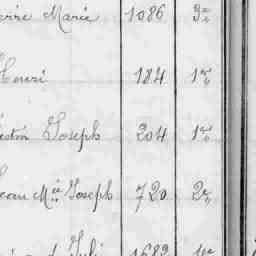 erre Marie 1086 3e
Henri 184 1re
estin Joseph 204 1re
ean Mie Joseph 720 2e
Juli 1682